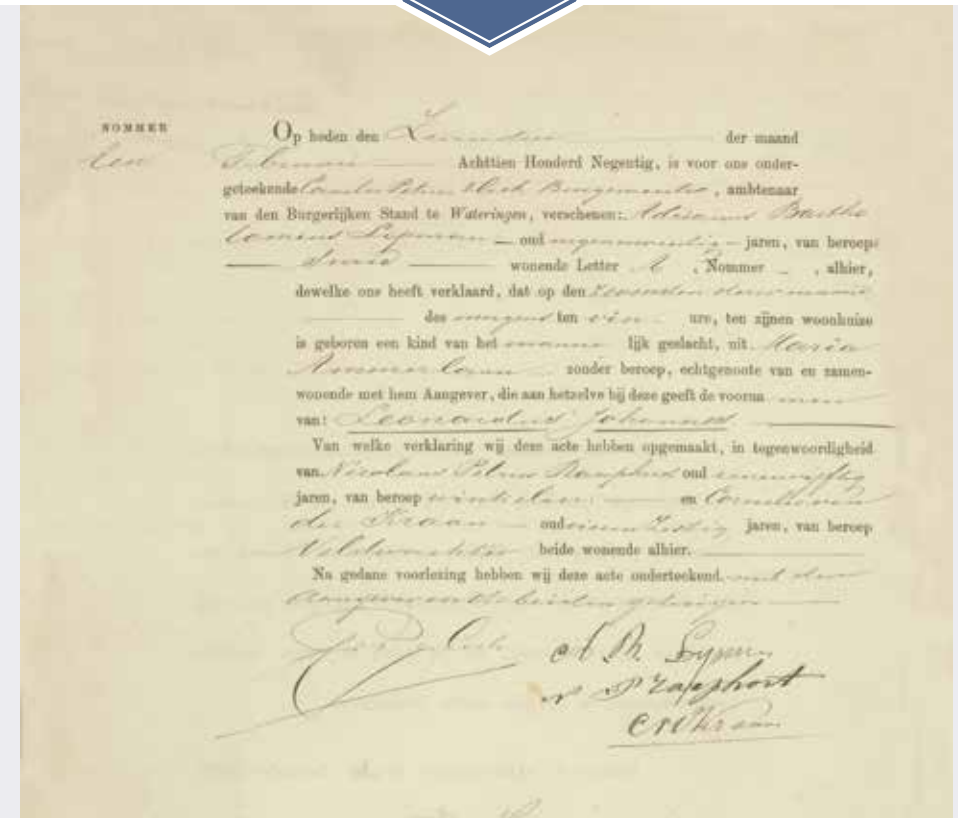 NOMMER
tien
Op heden den Zevenden der maand
Februari Achttien Honderd Negentig, is voor ons onder-
geteekende Cornelis Petrus Burgemeester, ambtenaar
van den Burgerlijken Stand te Wateringen, verschenen: Adrianus Bartho
lomeus oud negenentwintig jaren, van beroep
Smid wonende Letter A, Nommer , alhier,
dewelke ons heeft verklaard, dat op den Zevenden dezer maand
des morgens ten vier ure, ten zijnen woonhuize
is geboren een kind van het manne lijk geslacht, uit Maria
Ammerlaan zonder beroep, echtgenoote van en samen-
wonende met hem Aangever, die aan hetzelve bij deze geeft de voorna men
van: Leonardus Johannes
Van welke verklaring wij deze acte hebben opgemaakt, in tegenwoordigheid
van Nicolaas Petrus Raaphorst oud
jaren, van beroep winkelier en Cornelis van
der Kraan oud jaren, van beroep
Veldwachter beide wonende alhier.
Na gedane voorlezing hebben wij deze acte onderteekend. met den
Aangever en de beiden getuigen